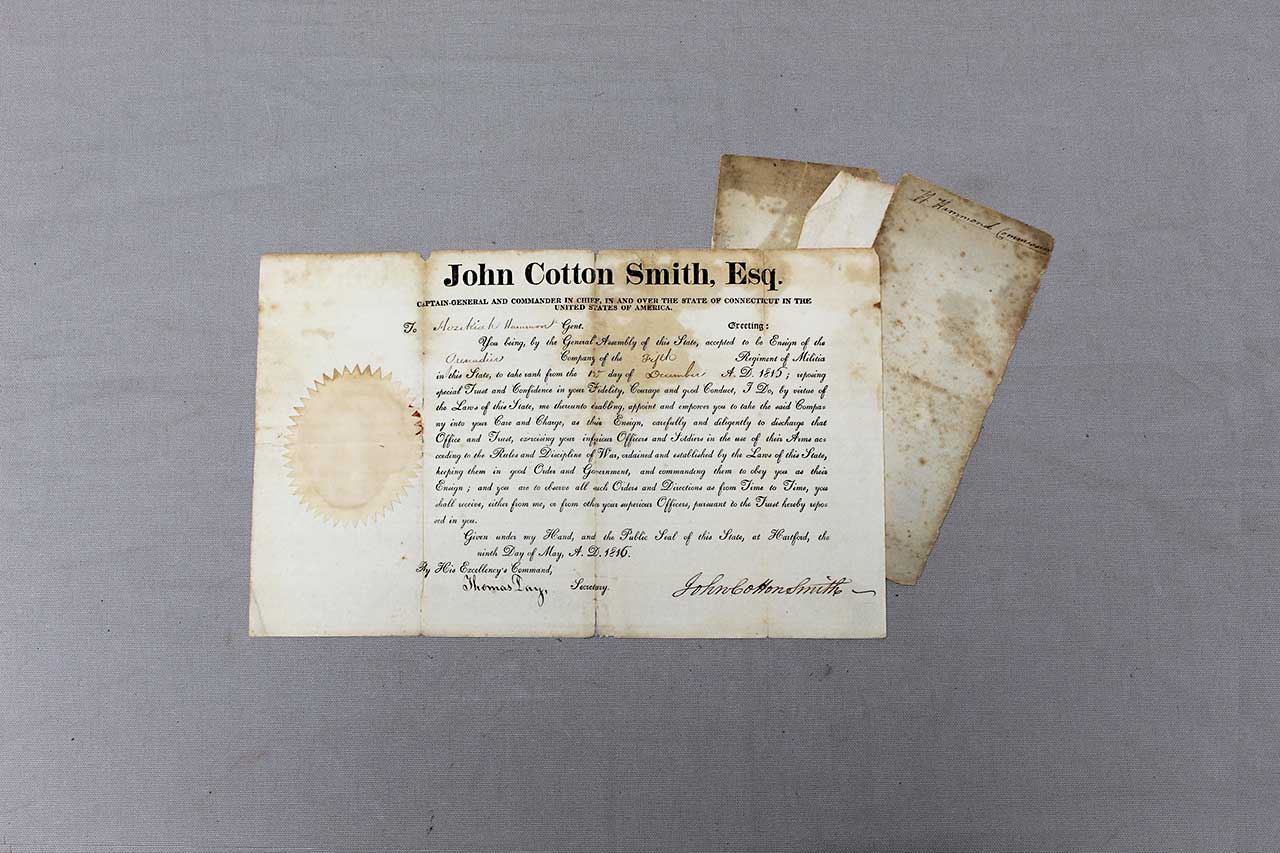 John Cotton Smith, Esq.
CAPTAIN-GENERAL AND COMMANDER IN CHIEF, IN AND OVER THE STATE OF CONNECTICUT IN THE
UNITED STATES OF AMERICA.
To Hezekiah Hammond Gent. Greeting:
You being, by the General Assembly of this State, accepted to be Ensign of the
Grenadier Company of the Fifth Regiment of Militia
in this State, to take rank from the day of December A. D. 1815; reposing
special Trust and Confidence in your Fidelity, Courage and good Conduct, I Do, by virtue of
the Laws of this State, me thereunto enabling, appoint and empower you to take the said Compa-
ny into your Care and Charge, as their Ensign, carefully and diligently to discharge that
Office and Trust, exercising your inferior Officers and Soldiers in the use of their Arms ac-
cording to the Rules and Discipline of War, ordained and established by the Laws of this State,
keeping them in good Order and Government, and commanding them to obey you as their
Ensign; and you are to observe all such Orders and Directions as from Time to Time, you
shall receive, either from me, or from other your superior Officers, pursuant to the Trust hereby repos-
ed in you.
Given under my Hand, and the Public Seal of this State, at Hartford, the
ninth Day of May, A. D. 1816.
By His Excellency's Command,
Thomas Day, Secretary.
John Cotton Smith
H. Hammond Commission